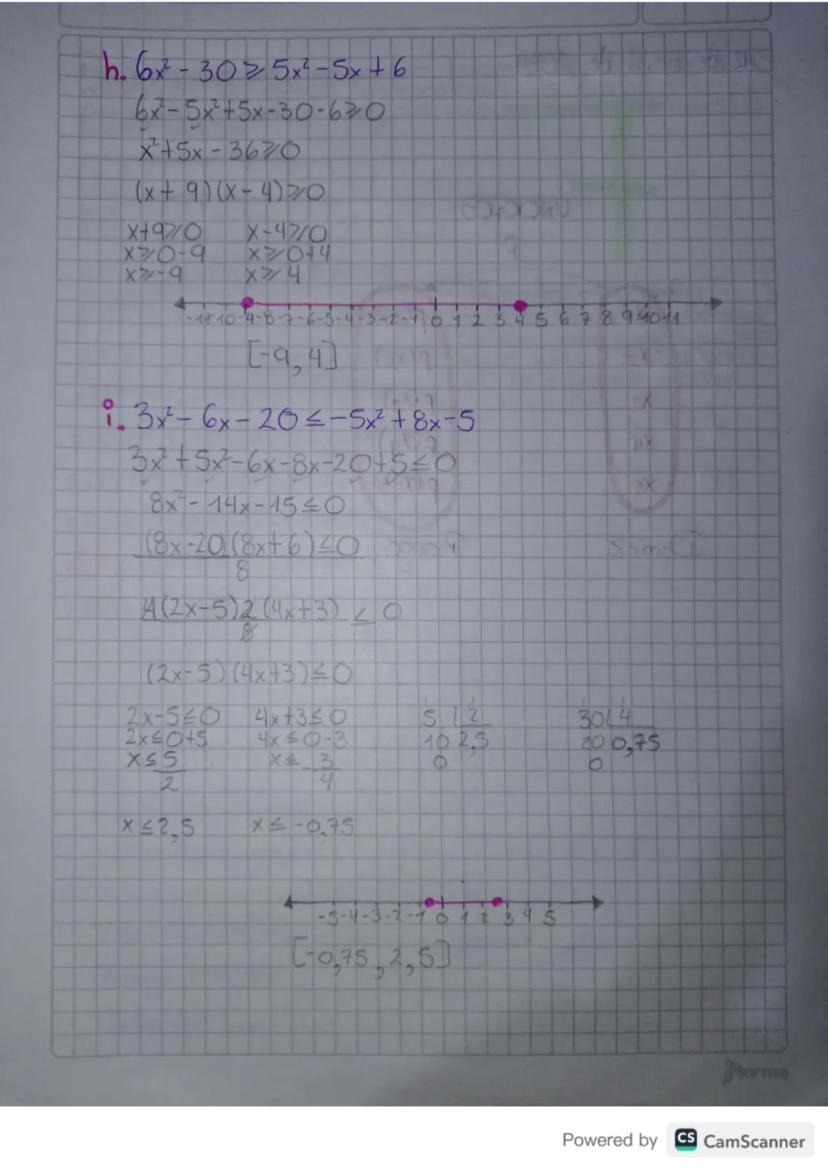 h. 6x² - 30 ≥ 5x² - 5x + 6
6x² - 5x² + 5x - 30 - 6 ≥ 0
x² + 5x - 36 ≥ 0
(x + 9)(x - 4) ≥ 0
x+9≥0 x-4≥0
x≥0-9 x≥0+4
x≥-9 x≥4
-11-10-9-8-7-6-5-4-3-2-1 0 1 2 3 4 5 6 7 8 9 10 11
[-9, 4]
i. 3x² - 6x - 20 ≤ -5x² + 8x - 5
3x² + 5x² - 6x - 8x - 20 + 5 ≤ 0
8x² - 14x - 15 ≤ 0
(8x-20)(8x+6) ≤ 0
8
4(2x-5)2(4x+3) ≤ 0
8
(2x-5)(4x+3) ≤ 0
2x-5≤0 4x+3≤0 5 2 30 4
2x≤0+5 4x≤0-3 10 2,5 20 0,75
x≤5 x≤-3 0 0
2 4
x≤2,5 x≤-0,75
-5-4-3-2-1 0 1 2 3 4 5
[-0,75, 2,5]
Norma
Powered by CS CamScanner